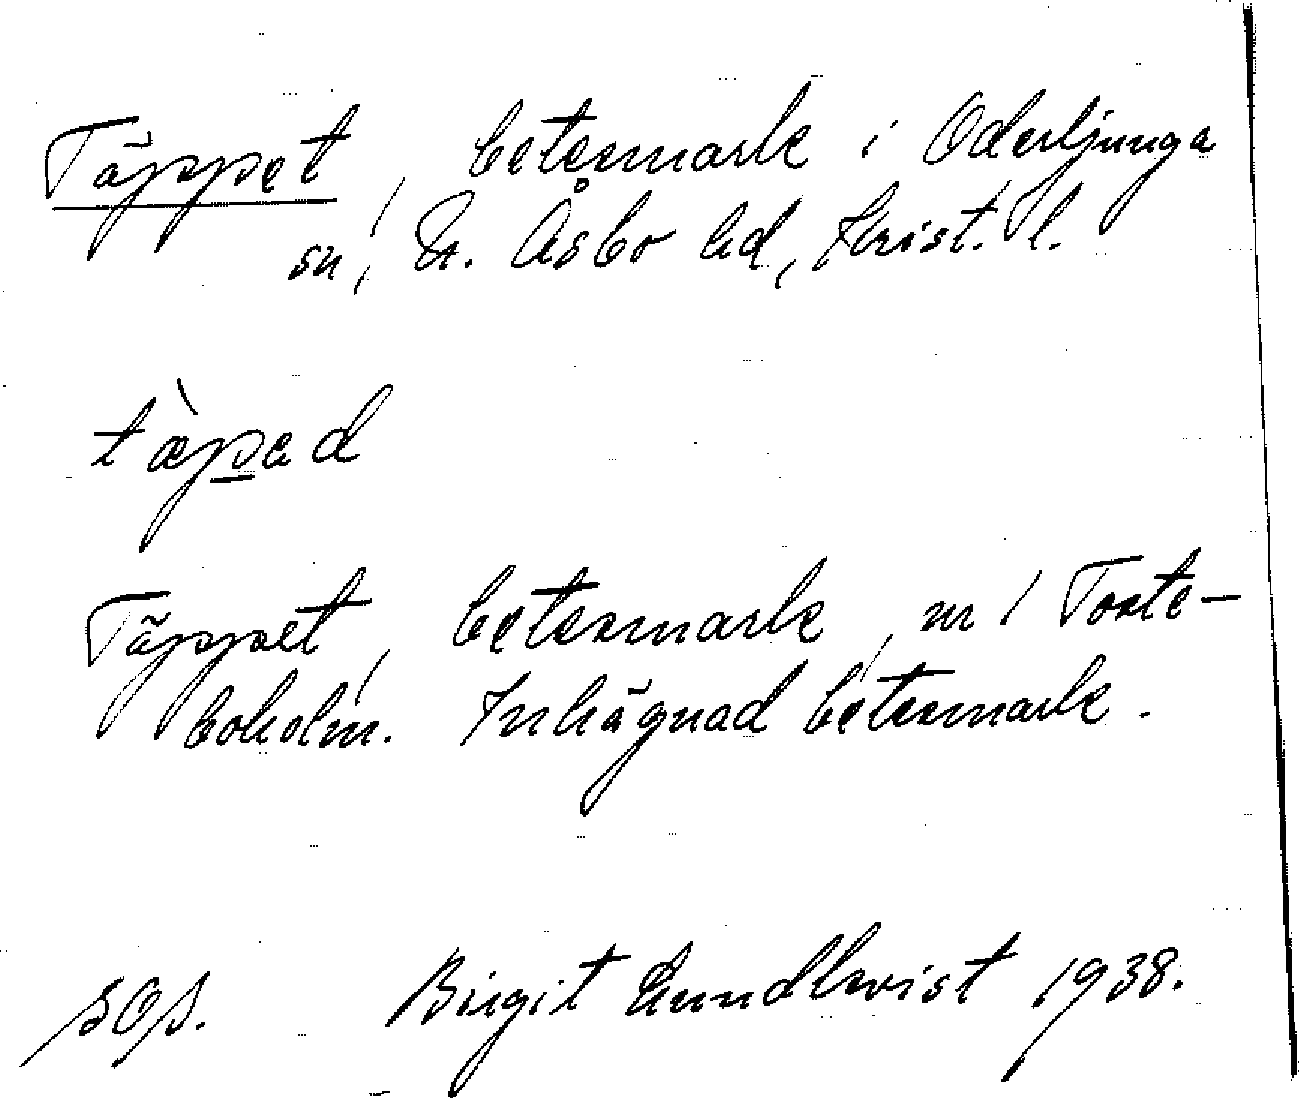 Täppet, betesmark i Oderljunga
sn, N. Åsbo hd, Krist. l.
tæ̀p̠ad
Täppet, betesmark, nr 1 Toste-
boholm. Inhägnad betesmark.
SOS. Birgit Lundkvist 1938.